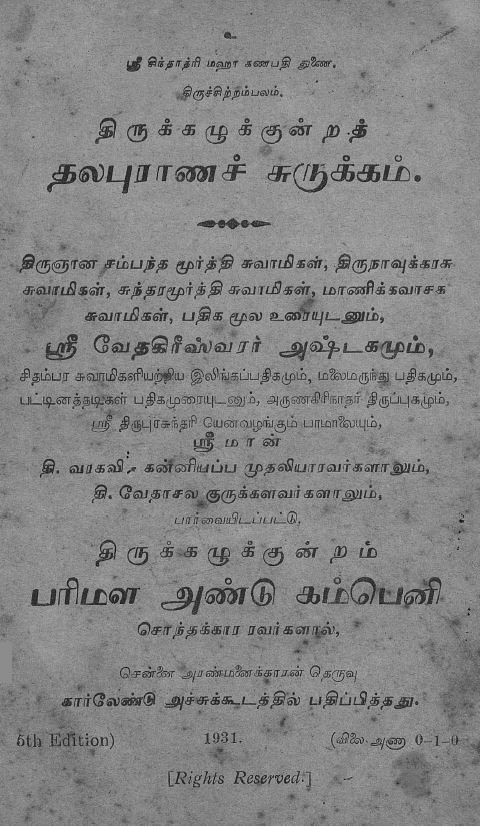 உ
ஸ்ரீ சிந்தாத்ரி மஹா கணபதி துணை.
திருச்சிற்றம்பலம்.
திருக்கழுக்குன்றத்
தலபுராணச் சுருக்கம்.
திருஞான சம்பந்த மூர்த்தி சுவாமிகள், திருநாவுக்கரசு
சுவாமிகள், சுந்தரமூர்த்தி சுவாமிகள், மாணிக்கவாசக
சுவாமிகள், பதிக மூல உரையுடனும்,
ஸ்ரீ வேதகிரீஸ்வரர் அஷ்டகமும்,
சிதம்பர சுவாமிகளியற்றிய இலிங்கப்பதிகமும், மலைமருந்து பதிகமும்,
பட்டினத்தடிகள் பதிகமுரையுடனும், அருணகிரிநாதர் திருப்புகழும்,
ஸ்ரீ திருபுரசுந்தரி யெனவழங்கும் பாமாலையும்,
ஸ்ரீமான்
தி. வரகவி. கன்னியப்ப முதலியாரவர்களாலும்,
தி. வேதாசல குருக்களவர்களாலும்,
பார்வையிடப்பட்டு,
திருக்கழுக்குன்றம்
பரிமள அண்டு கம்பெனி
சொந்தக்கார ரவர்களால்,
சென்னை அரண்மனைக்காரன் தெருவு
கார்லேண்டு அச்சுக்கூடத்தில் பதிப்பித்தது.
5th Edition) 1931. (விலை அணா 0-1-0
[Rights Reserved.]